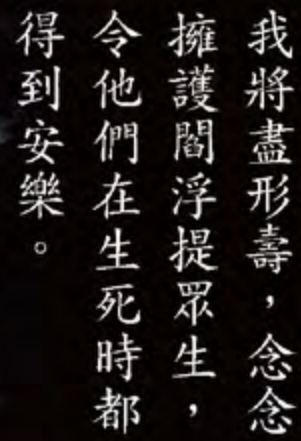 我將盡形壽，念念
擁護閻浮提眾生，
令他們在生死時都
得到安樂。